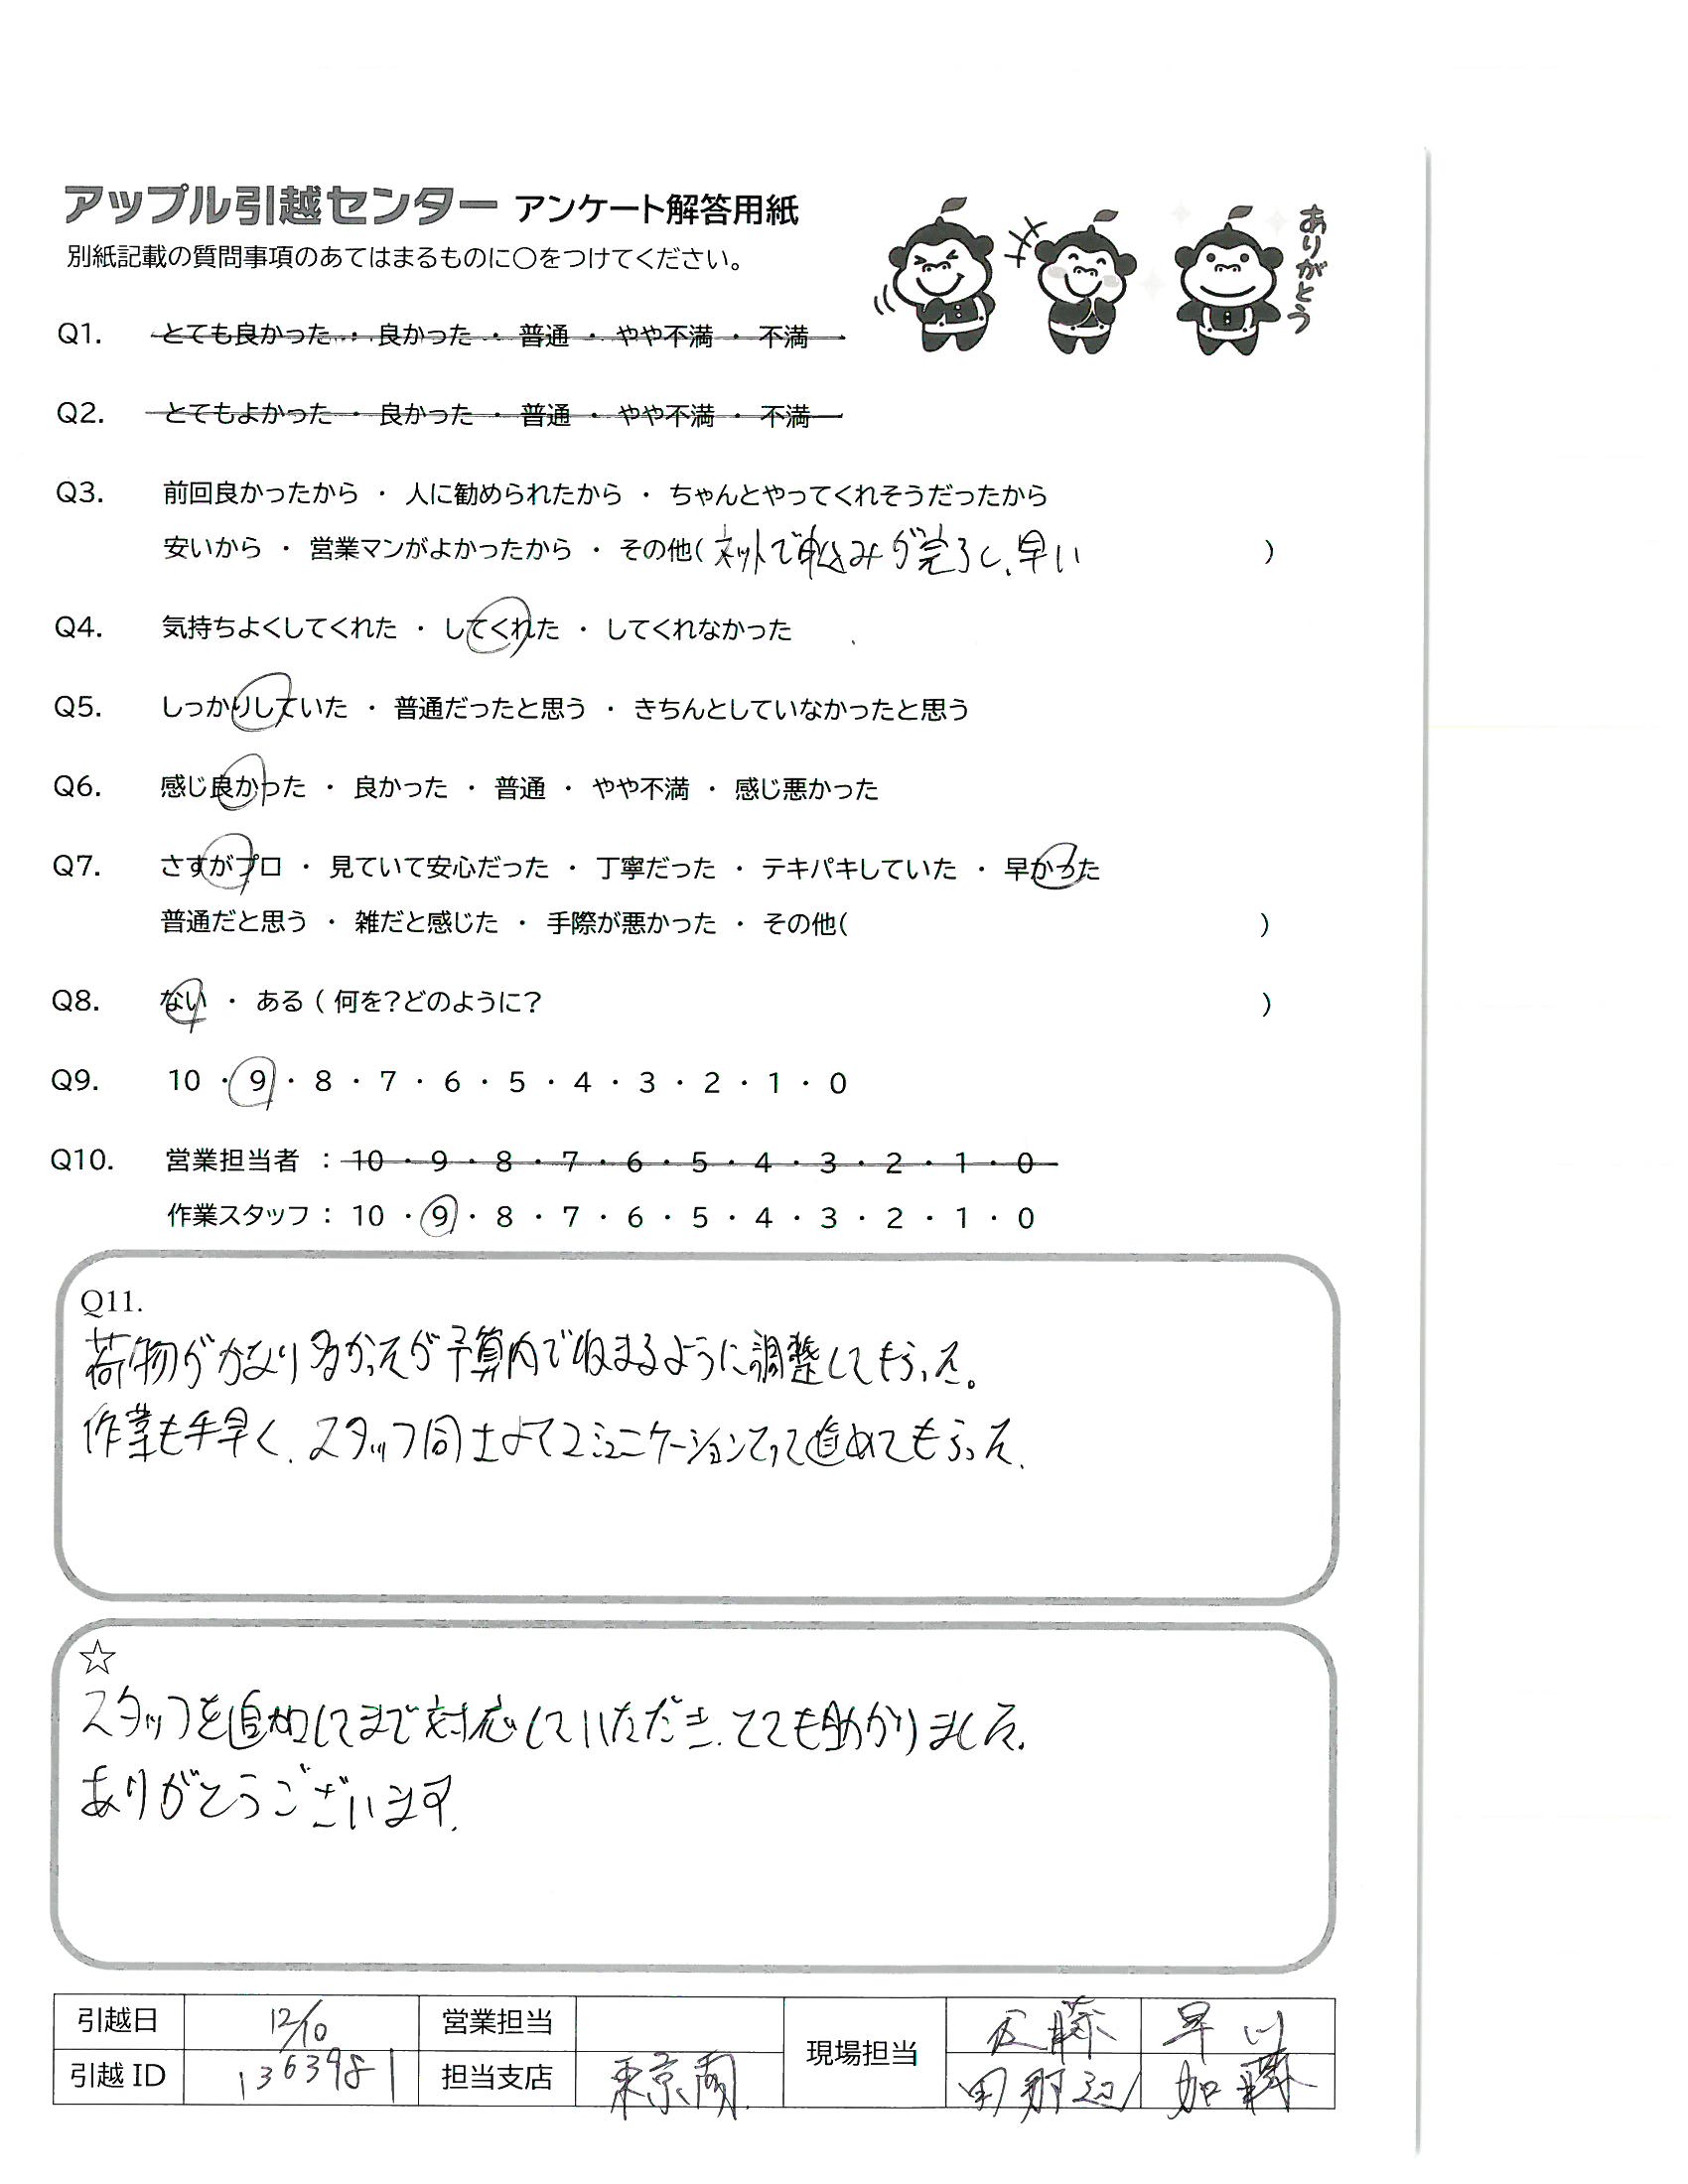 アップル引越センター アンケート解答用紙
別紙記載の質問事項のあてはまるものに〇をつけてください。
ありがとう
Q1. とても良かった ・ 良かった ・ 普通 ・ やや不満 ・ 不満
Q2. とてもよかった ・ 良かった ・ 普通 ・ やや不満 ・ 不満
Q3. 前回良かったから ・ 人に勧められたから ・ ちゃんとやってくれそうだったから
安いから ・ 営業マンがよかったから ・ その他( ネットで申込みが完了し、早い )
Q4. 気持ちよくしてくれた ・ してくれた ・ してくれなかった
Q5. しっかりしていた ・ 普通だったと思う ・ きちんとしていなかったと思う
Q6. 感じ良かった ・ 良かった ・ 普通 ・ やや不満 ・ 感じ悪かった
Q7. さすがプロ ・ 見ていて安心だった ・ 丁寧だった ・ テキパキしていた ・ 早かった
普通だと思う ・ 雑だと感じた ・ 手際が悪かった ・ その他( )
Q8. ない ・ ある ( 何を?どのように? )
Q9. 10 ・ 9 ・ 8 ・ 7 ・ 6 ・ 5 ・ 4 ・ 3 ・ 2 ・ 1 ・ 0
Q10. 営業担当者 : 10 ・ 9 ・ 8 ・ 7 ・ 6 ・ 5 ・ 4 ・ 3 ・ 2 ・ 1 ・ 0
作業スタッフ : 10 ・ 9 ・ 8 ・ 7 ・ 6 ・ 5 ・ 4 ・ 3 ・ 2 ・ 1 ・ 0
Q11.
荷物がかなり多かったが予算内で収まるように調整してもらった。
作業も手早く、スタッフ同士よくコミュニケーションとって進めてもらった。
☆
スタッフを追加してまで対応していただき、とても助かりました。
ありがとうございます。
引越日 12/10 営業担当 現場担当 佐藤 早川
引越ID 1363981 担当支店 東京南 田那辺 加藤